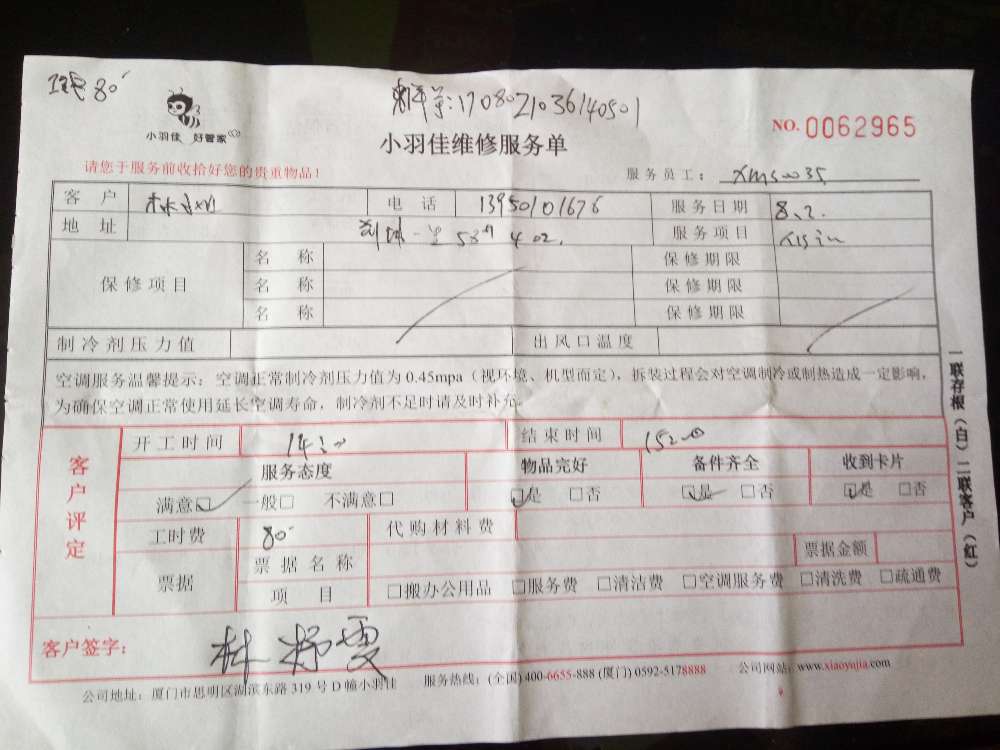 80
小羽佳 好管家
单:170802103614050​1
小羽佳维修服务单
NO. 0062965
请您于服务前收拾好您的贵重物品!
服务员工: XMS0035
客户 电话 13950101676 服务日期 8.2.
地址 服务项目
保修项目 名称 保修期限
名称 保修期限
名称 保修期限
制冷剂压力值 出风口温度
空调服务温馨提示:空调正常制冷剂压力值为0.45mpa(视环境、机型而定),拆装过程会对空调制冷或制热造成一定影响,
为确保空调正常使用延长空调寿命,制冷剂不足时请及时补充。
一联存根(白)二联客户(红)
客户评定
开工时间 结束时间
服务态度 物品完好 备件齐全 收到卡片
满意□ 一般□ 不满意□ □是 □否 □是 □否 □是 □否
工时费 80 代购材料费
票据 票据名称 票据金额
项目 □搬办公用品 □服务费 □清洁费 □空调服务费 □清洗费 □疏通费
客户签字:
公司地址:厦门市思明区湖滨东路319号D幢小羽佳 服务热线:(全国)400-6655-888 (厦门) 0592-5178888 公司网站:www.xiaoyujia.com